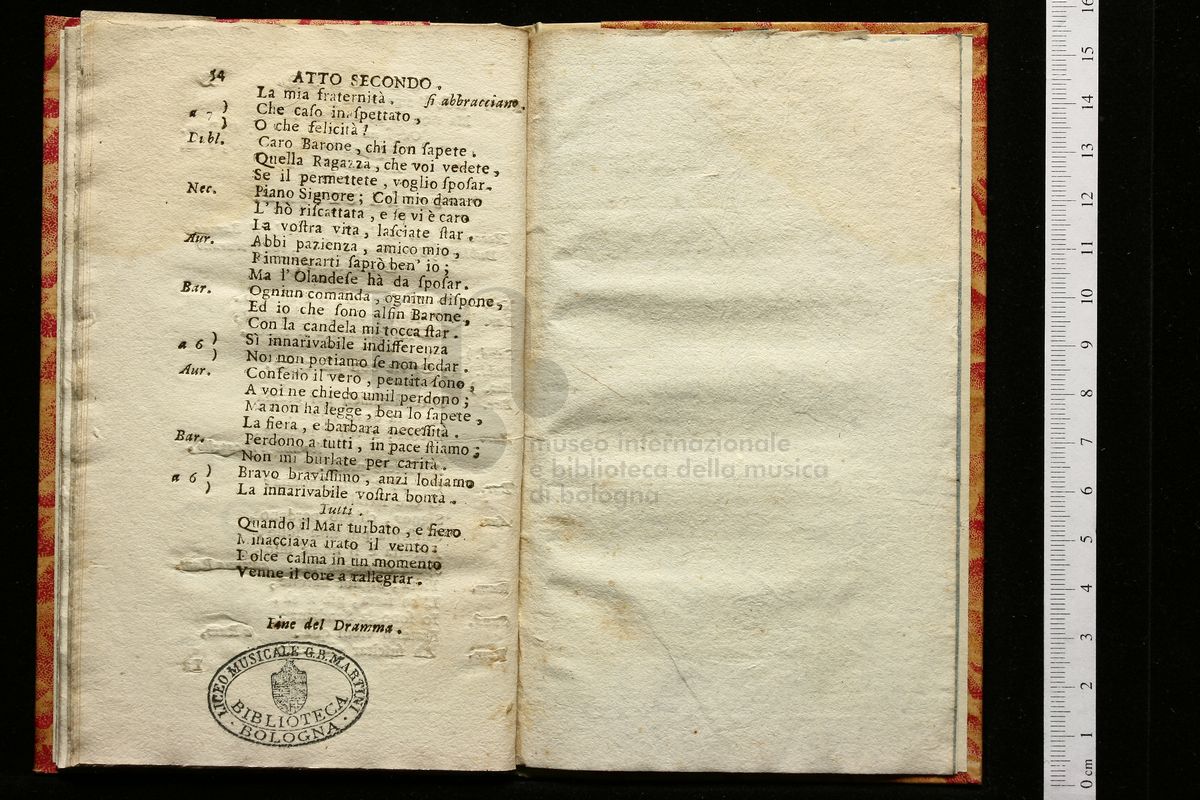 54 ATTO SECONDO.
La mia fraternità. si abbracciano.
a 7 ) Che caso inaspettato,
) O che felicità!
Dibl. Caro Barone, chi son sapete.
Quella Ragazza, che voi vedete,
Se il permettete, voglio sposar.
Nec. Piano Signore; Col mio danaro
L' hò riscattata, e se vi è caro
La vostra vita, lasciate star.
Aur. Abbi pazienza, amico mio,
Rimunerarti saprò ben' io;
Ma l' Olandese hà da sposar.
Bar. Ogniun comanda, ogniun dispone,
Ed io che sono alfin Barone,
Con la candela mi tocca star.
a 6 ) Sì innarivabile indifferenza
) Noi non potiamo se non lodar.
Aur. Confesso il vero, pentita sono,
A voi ne chiedo umil perdono;
Ma non ha legge, ben lo sapete,
La fiera, e barbara necessità.
Bar. Perdono a tutti, in pace stiamo;
Non mi burlate per carità.
a 6 ) Bravo bravissimo, anzi lodiamo
) La innarivabile vostra bontà.
Tutti.
Quando il Mar turbato, e fiero
Minacciava irato il vento:
Dolce calma in un momento
Venne il core a rallegrar.
Fine del Dramma.
LICEO MUSICALE G.B. MARTINI
BIBLIOTECA
· BOLOGNA ·
museo internazionale
e biblioteca della musica
di bologna
16
15
14
13
12
11
10
9
8
7
6
5
4
3
2
1
0 cm